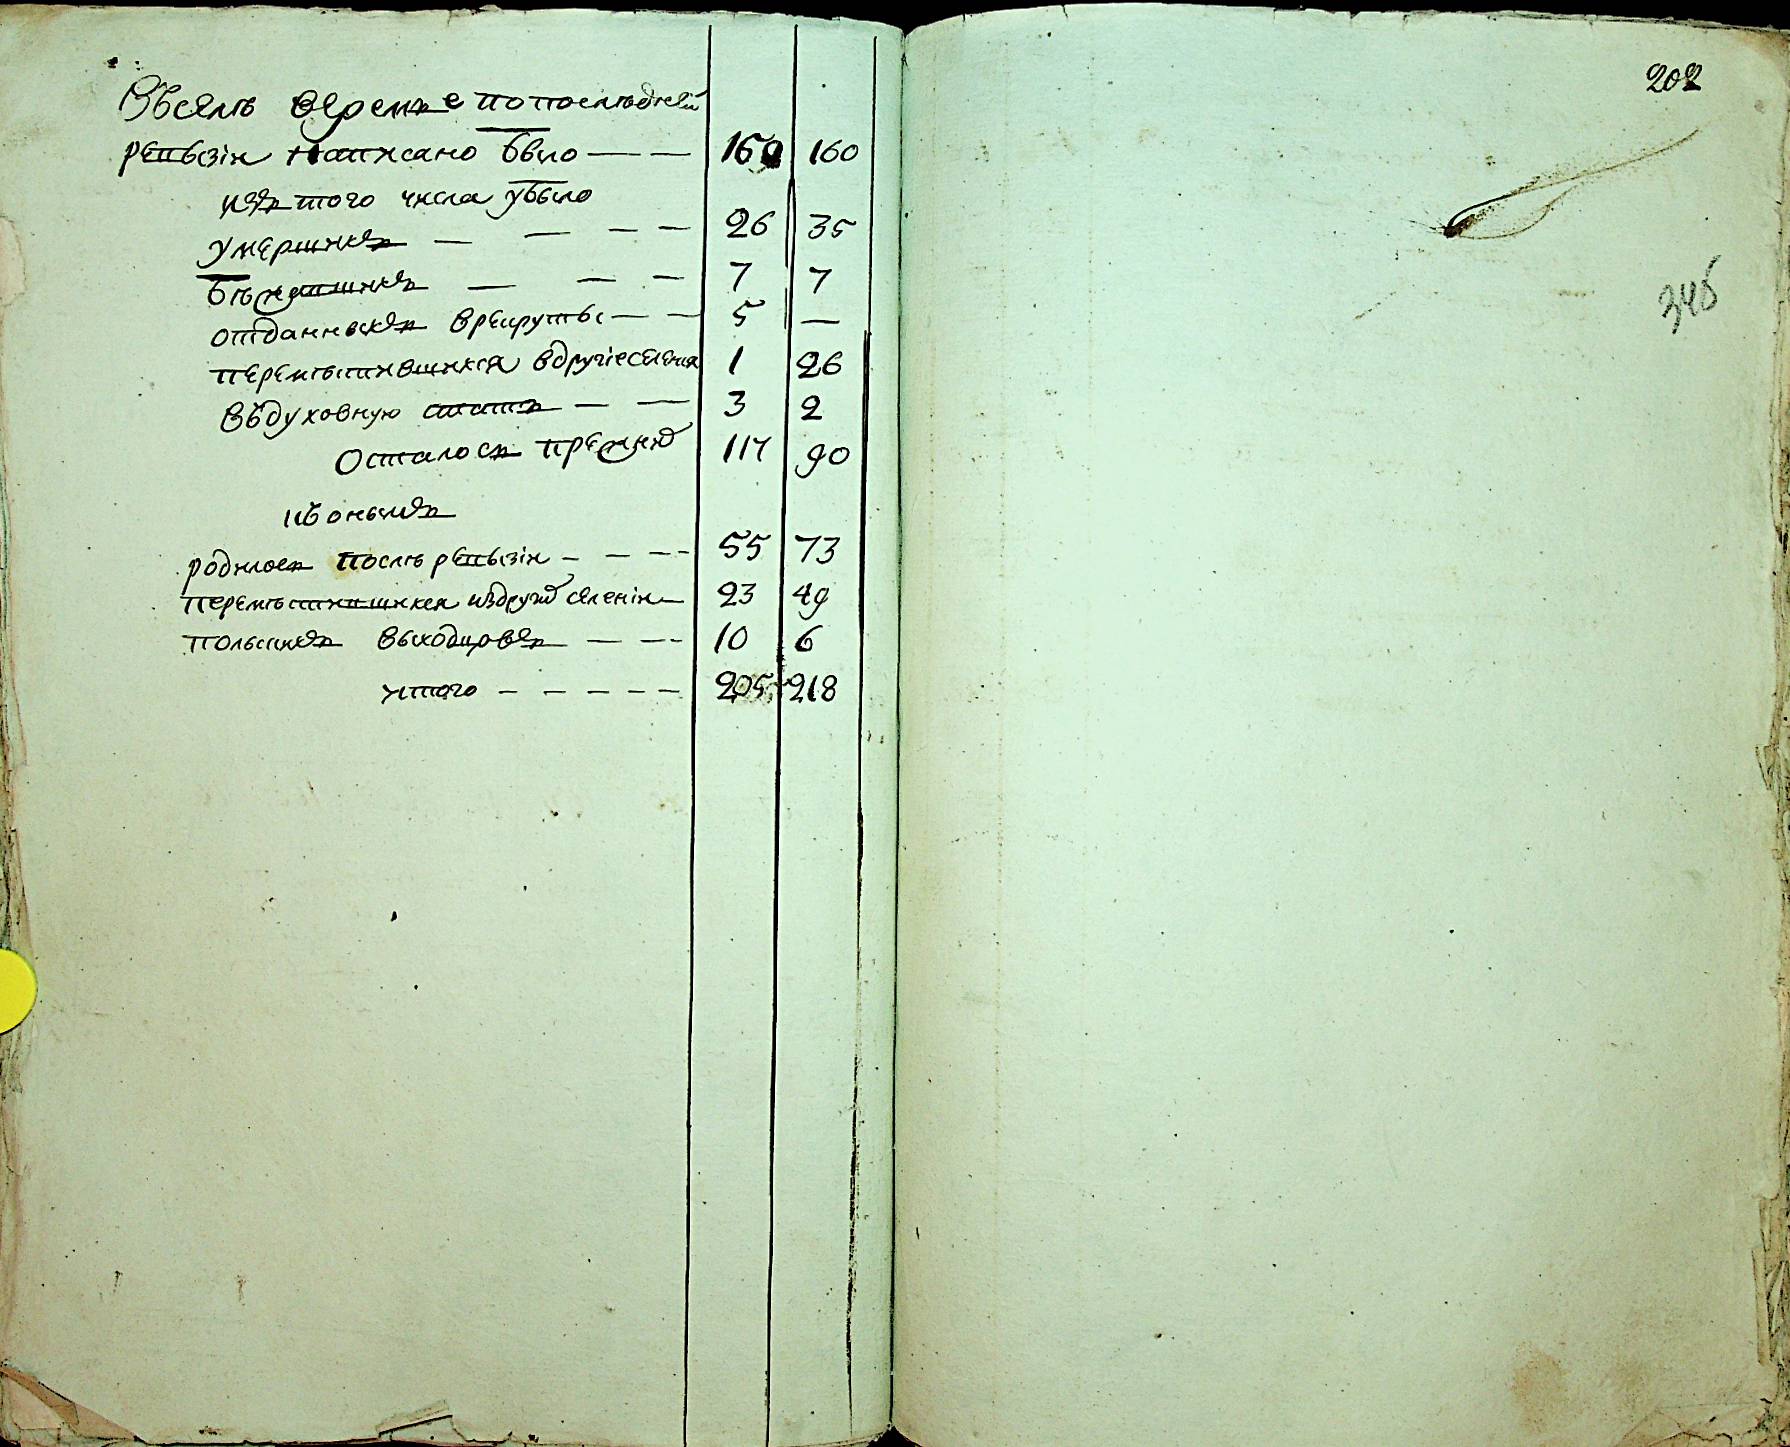 Въсемъ време попоследней
ревизіи написано было — — 160 160
изъ того числа убыло
умершихъ — — — — 26 35
бежавшихъ — — — 7 7
отданныхъ врекруты — — 5 —
переместившихся вдругіе селения 1 26
въдуховную — — 3 2
Осталось прежнихъ 117 90
родилось после ревизіи — — — - 55 73
переместившихся издругихъ селеніи — 23 49
польскихъ выходцовъ — — — 10 6
итого — — — — — 205 218
202
346